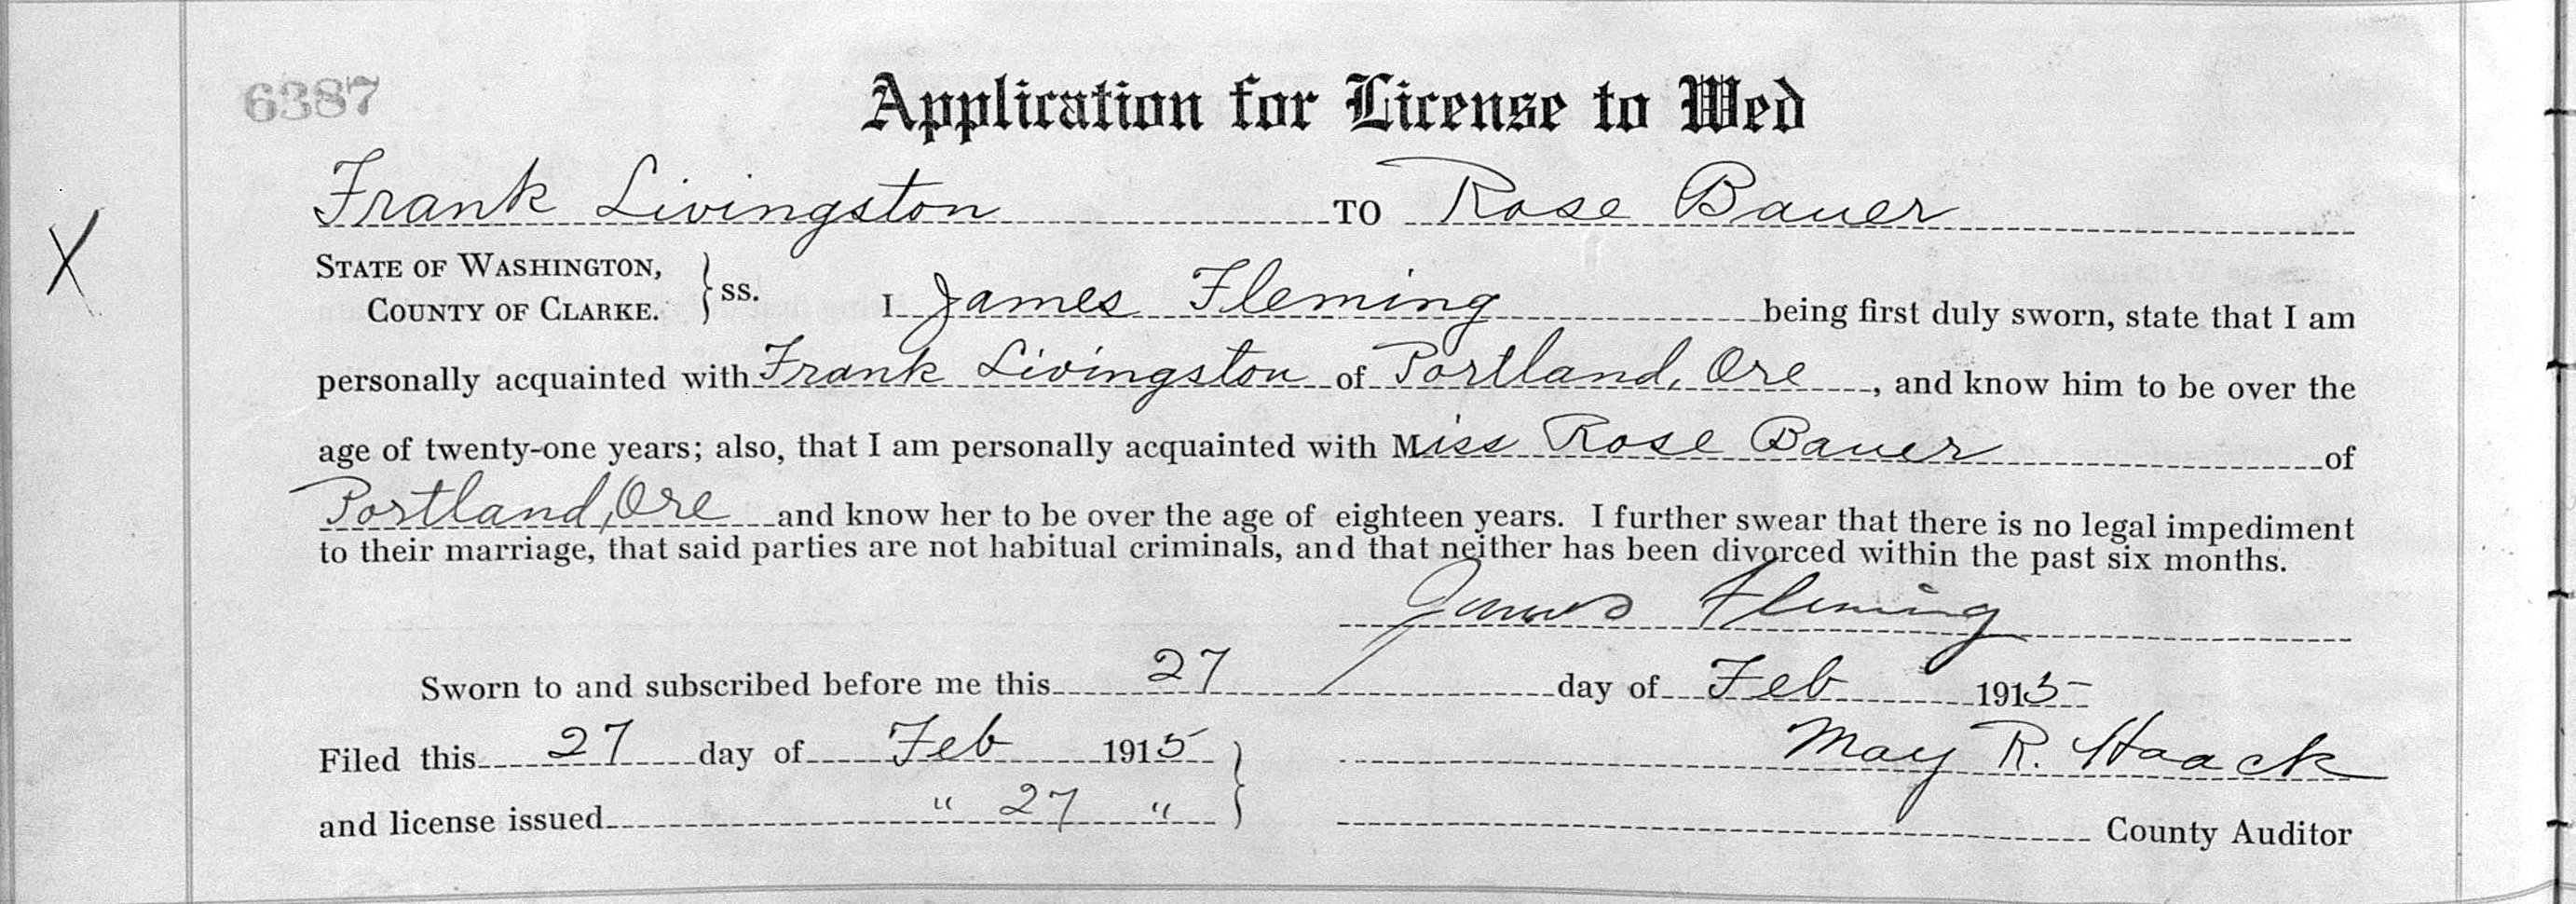 6387
Application for License to Wed
Frank Livingston TO Rose Bauer
STATE OF WASHINGTON,
COUNTY OF CLARKE. } ss.
I James Fleming being first duly sworn, state that I am
personally acquainted with Frank Livingston of Portland, Ore, and know him to be over the
age of twenty-one years; also, that I am personally acquainted with Miss Rose Bauer of
Portland, Ore and know her to be over the age of eighteen years. I further swear that there is no legal impediment
to their marriage, that said parties are not habitual criminals, and that neither has been divorced within the past six months.
James Fleming
Sworn to and subscribed before me this 27 day of Feb 1915
Filed this 27 day of Feb 1915
May R. Haack
and license issued " 27 "
County Auditor
X